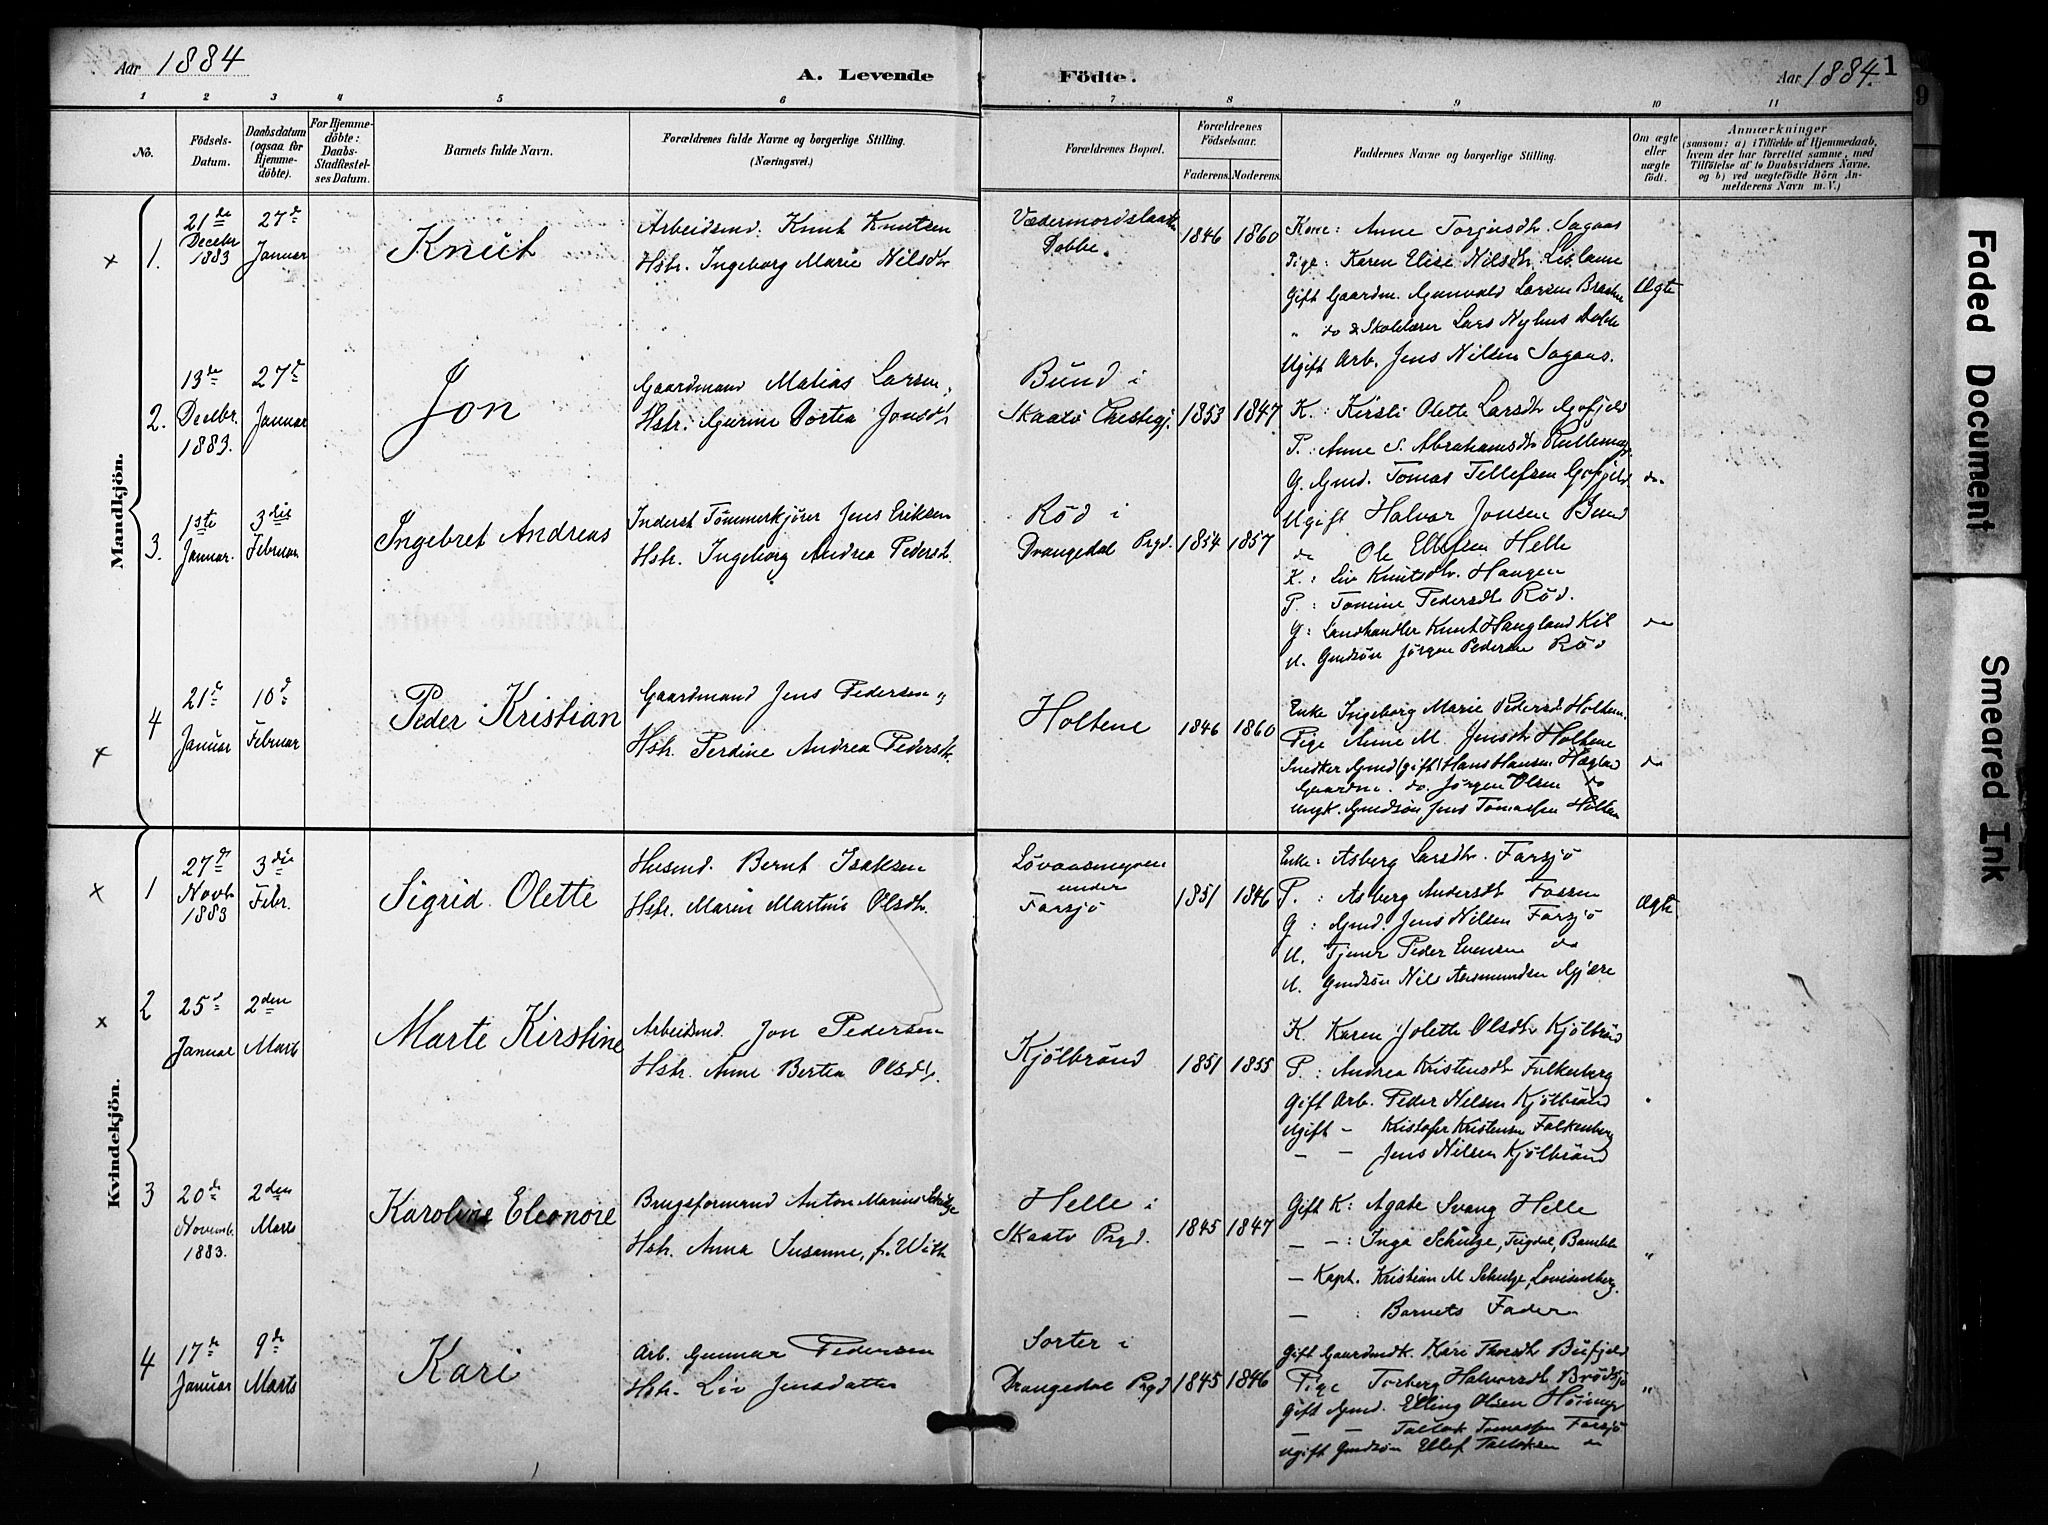 Aar 1884
A. Levende Födte.
Aar 1884. 1
1 2 3 4 5 6 7 8 9 10 11
No.
Födsels-Datum.
Daabsdatum (ogsaa for Hjemme-döbte).
For Hjemme-döbte: Daabs-Stadfæstel-ses Datum.
Barnets fulde Navn.
Forældrenes fulde Navne og borgerlige Stilling. (Næringsvei.)
Forældrenes Bopæl.
Forældrenes Födselsaar.
Faderens. Moderens.
Faddernes Navne og borgerlige Stilling.
Om ægte eller uægte födt.
Anmærkninger
(saasom: a) i Tilfælde af Hjemmedaab, hvem der har forrettet samme, med Tilföielse af to Daabsvidners Navne, og b) ved uægtefödte Börn An-melderens Navn m. V.)
Mandkjön.
1. 21de Decebr 1883 27de Januar
Knut
Arbeidsmd. Knut Knutsen
Hstr. Ingeborg Marie Nilsdtr
Dobbe.
1846 1860
Kone: Anne Torjusdtr. Sagaas
Pige: Karen Elise Nilsdtr.
Gift Gaardm. Gunvald Larsen
" do & Skolelærer Lars Nyhus Dobbe
Ugift Arb. Jens Nilsen Sagaas.
Ægte
2. 13de Decebr. 1883. 27de Januar
Jon
Gaardmand Matias Larsen,
Hstr. Gurine Dortea Jonsdtr
Bund i
Skaatö
1853 1847
K. : Kirsti Olette Larsdtr
P. : Anne S. Abrahamsdtr
G. Gmd. Tomas Tellefsen
Ugift Halvor Jonsen Bund
do Ole Ellefsen Helle
do
3. 1ste Januar. 3die Februar
Ingebret Andreas
Inderst Tömmerkjörer Jens Eriksen
Hstr. Ingeborg Andrea Pedersdtr.
Röd i
Drangedal Prgd.
1854 1857
K. : Liv Knutsdtr. Haugen
P. : Tomine Pedersdtr Röd.
G : Landhandler Knut Haugland Kil
U. Gmdsön Jörgen Pedersen Röd
do
4 21de Januar 10de Februar
Peder Kristian
Gaardmand Jens Pedersen "
Hstr. Perdine Andrea Pedersdtr.
Holtene
1846 1860
Enke Ingeborg Marie Pedersd Holten.
Pige Anne M. Jensdtr Holtene
Snedker Gmd (gift) Hans Hansen
Gaardm. do. Jörgen Olsen do
Ungk. Gmdsön Jens Tomassen Holten
do
Kvindekjön.
1 27de Novbr 1883 3die Febr.
Sigrid Olette
Husmd. Bernt Isaksen
Hstr. Maren Martine Olsdtr.
Lövaasmyren
under
Farsjö
1851 1846
Enke: Asberg Larsdtr. Farsjö
P. : Asberg Andersdtr Fossen
G : Gmd. Jens Nilsen Farsjö
U. Tjener Peder Evensen do
U. Gmdsön Nils Aasmundsen
Ægte
2 25de Januar 2den Marts
Marte Kirstine
Arbeidsmd. Jon Pedersen
Hstr. Anne Bertea Olsdtr.
Kjölbrönd
1851 1855
K. Karen Jolette Olsdtr Kjölbrönd
P. : Andrea Kristensdtr Falkenberg
Gift Arb. Peder Nilsen Kjölbrönd
Ugift – Kristofer Kristensen Falkenberg
– – Jens Nilsen Kjölbrönd
3 20de Novemb. 1883. 2den Marts
Karoline Eleonore
Brugsformand Anton Marius Schulze
Hstr. Anna Susanne, f. With
Helle i
Skaatö Prgd.
1845 1847
Gift K: Agate Svang Helle
– –: Inga Schulze, Trigdal, Bamble
– Kapt. Kristian M Schulze, Lovisenberg.
– : Barnets Fader
"
4 17de Januar 9de Marts
Kari
Arb. Gunnar Pedersen
Hstr. Liv Jensdatter
Sorter i
Drangedal Prgd
1845 1846
Gift Gaardmdk. Kari Thorsdtr Bufjeld
Pige Torberg Halvorsdtr Brödsjö
Gift Gmd. Elling Olsen
– – Tallak Tomassen Farsjö
Ugift Gmdsön Ellef Tallaksen do
"
Faded Document
Smeared Ink
9